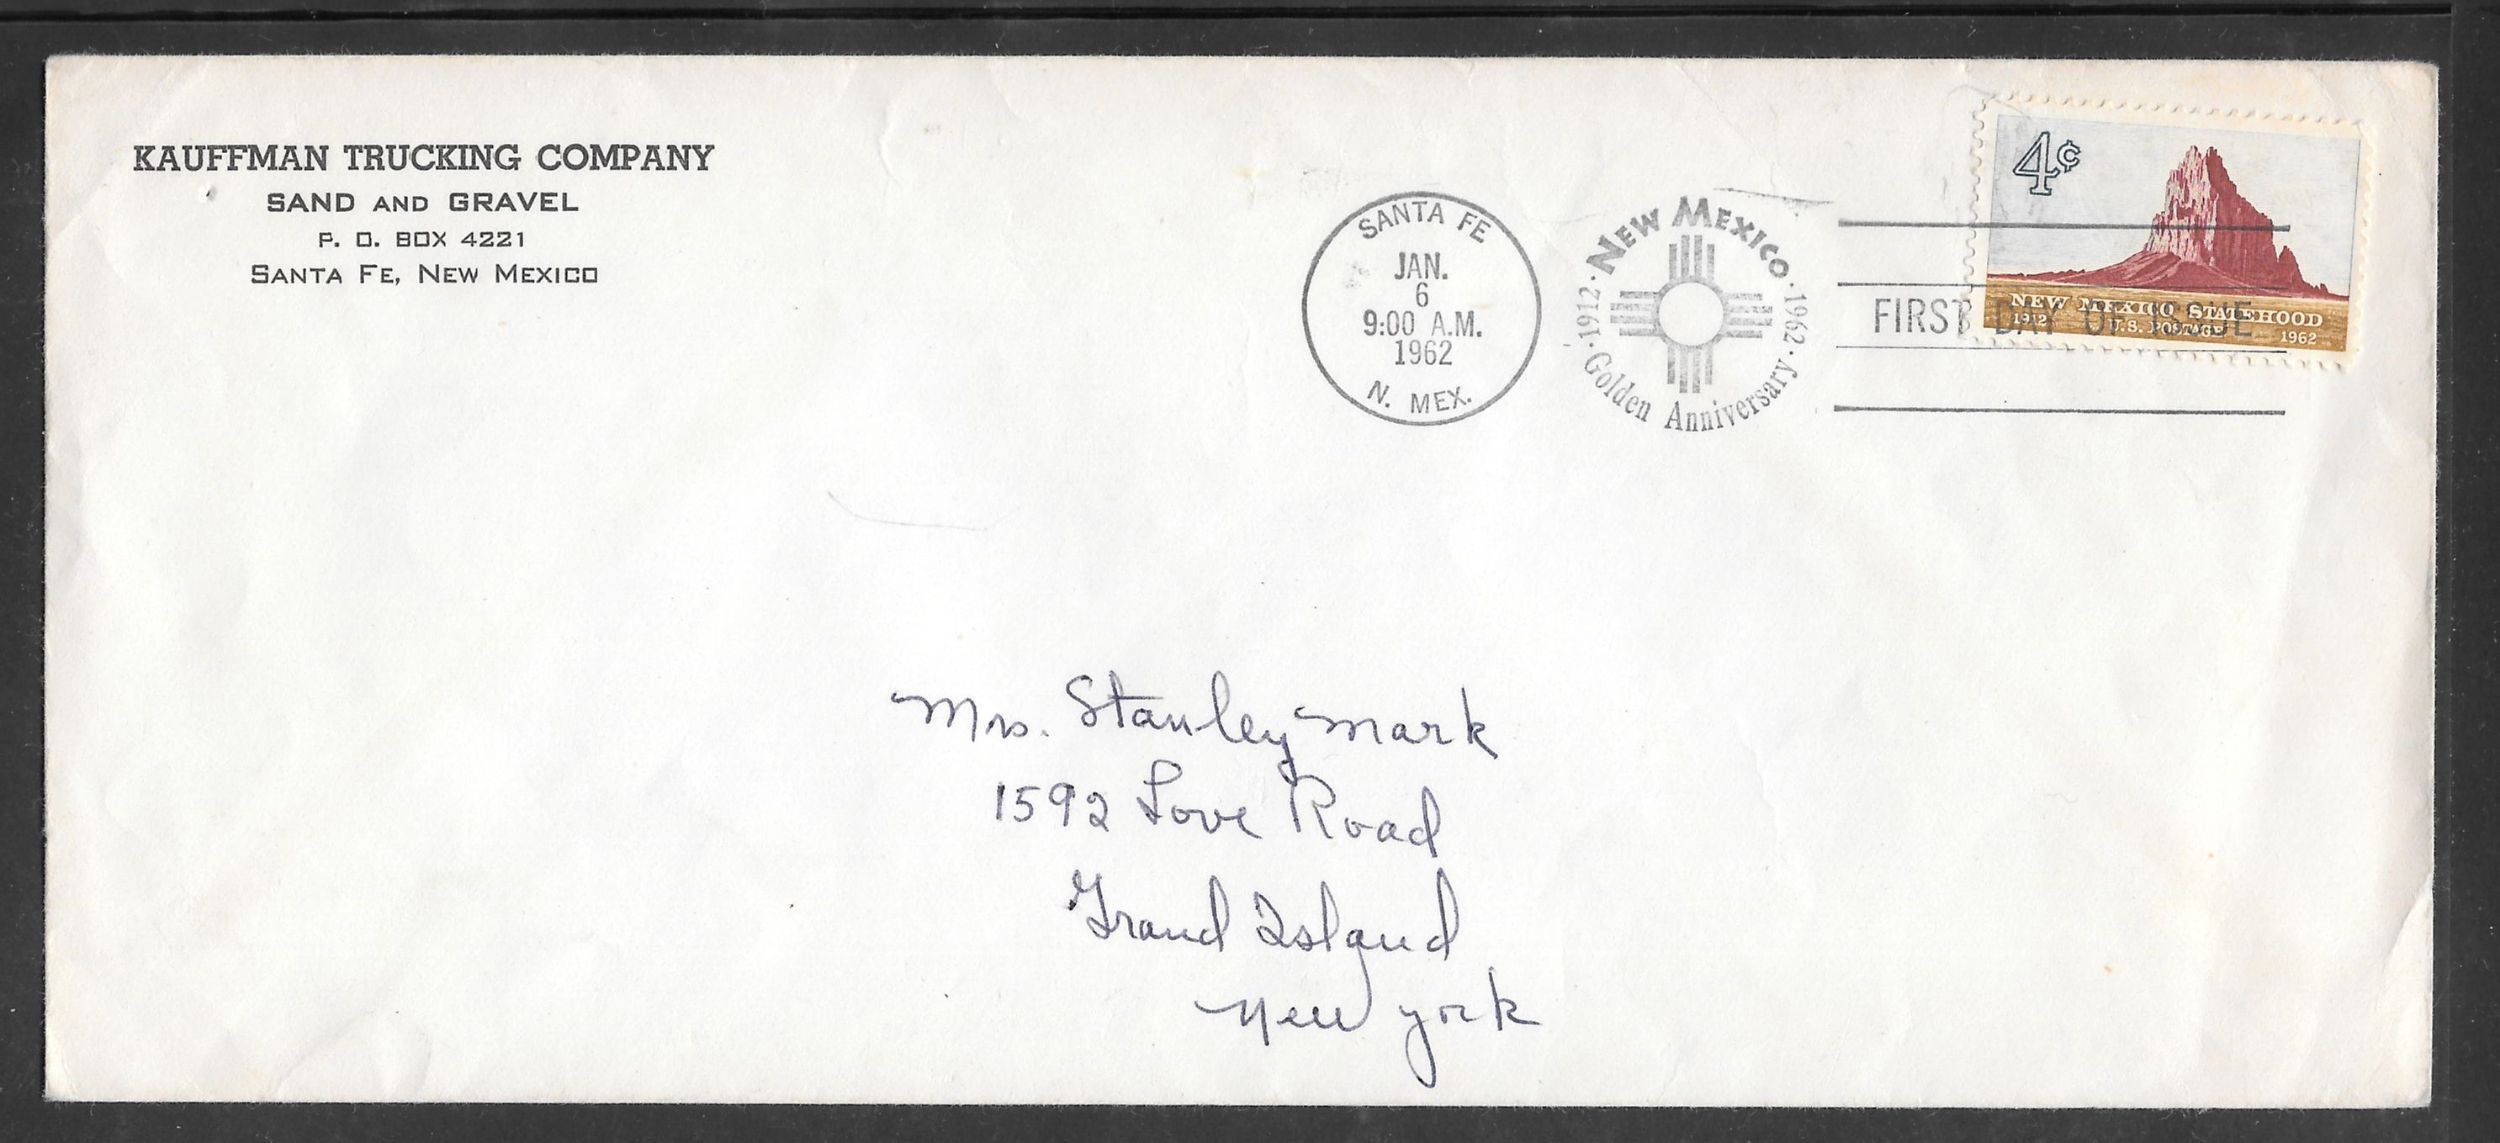 KAUFFMAN TRUCKING COMPANY
SAND AND GRAVEL
P. O. BOX 4221
SANTA FE, NEW MEXICO
SANTA FE
JAN.
6
9:00 A.M.
1962
N. MEX.
NEW MEXICO
·1912· ·1962·
Golden Anniversary
FIRST DAY OF ISSUE
4¢
NEW MEXICO STATEHOOD
1912 U.S. POSTAGE 1962
Mrs. Stanley Mark
1592 Love Road
Grand Island
New York